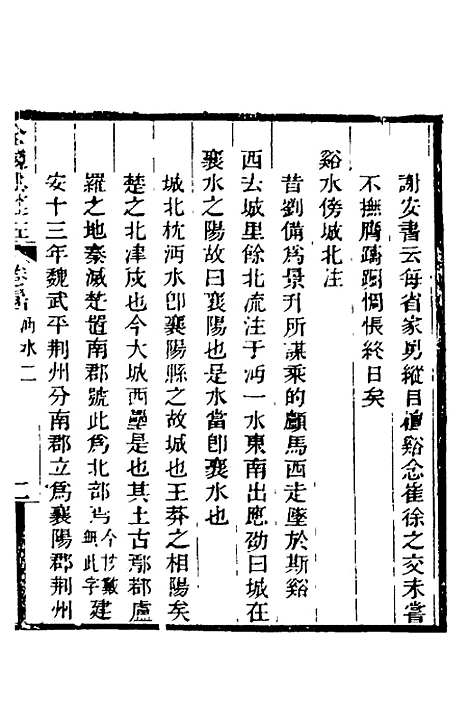 謝安書云每省家舅縱目檀谿念崔徐之交未嘗
不撫膺躊躇惆悵終日矣
谿水傍城北注
昔劉備爲景升所謀乘的顱馬西走墜於斯谿
西去城里餘北流注于沔一水東南出應劭曰城在
襄水之陽故曰襄陽也是水當卽襄水也
城北枕沔水卽襄陽縣之故城也王莽之相陽矣
楚之北津戍也今大城西壘是也其土古鄢郡盧
羅之地秦滅楚置南郡號此爲北部
建
安十三年魏武平荆州分南郡立爲襄陽郡荆州
沔水二